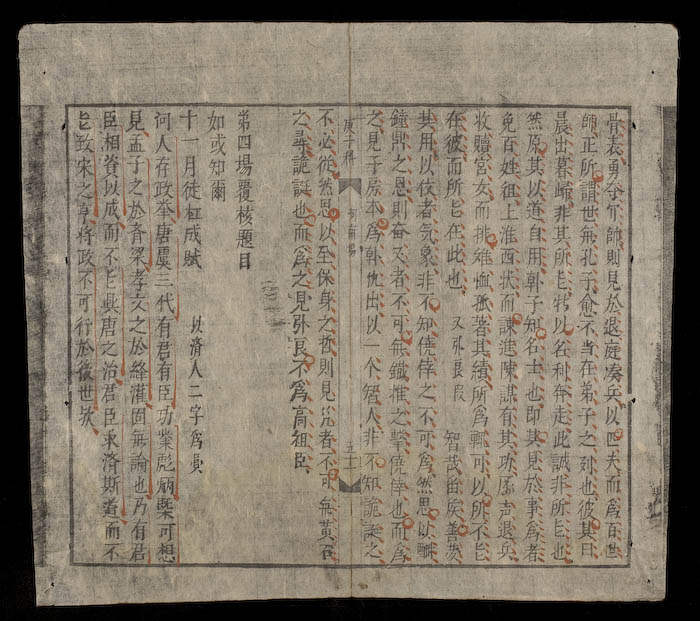 骨表勇夺介帥則見於退庭凑兵以匹夫而爲百世
師正所謂世無孔子愈不当在弟子之列也彼其曰
晨出暮歸非其所志特以名利奔走此誠非所志也
然原其以道自用韓子知名士也即其見於事爲者
免百姓祖上淮西状而諫進陳謀有其功声退兵
收贖宮女而排难恤孤著其績所爲輒可以所不志
在彼而所志在此也 又外良段 智哉留矦善
其用以伎者気象非不知僥倖之不可爲然思以酬
鐘鼎之恩則奋又者不可無鐵椎之擊僥倖也而爲
之見子房本爲韓仇出以一个智人非不知詭誕之
庚子科 河南場 五十
不必從然思以至保身之哲則見㡬者不可無黄石
之尋詭誕也而爲之見外良不爲高祖臣
第四場覆核題目
如或知爾
十一月徒杠成賦 以済人二字爲員
问人存政举唐虞三代有君有臣功業彪炳槩可想
見孟子之於斉梁孝文之於絳灌固無論也乃有君
臣相資以成而不能興唐之治君臣求済斯著而不
能致宋之亨將政不可行於後世欤